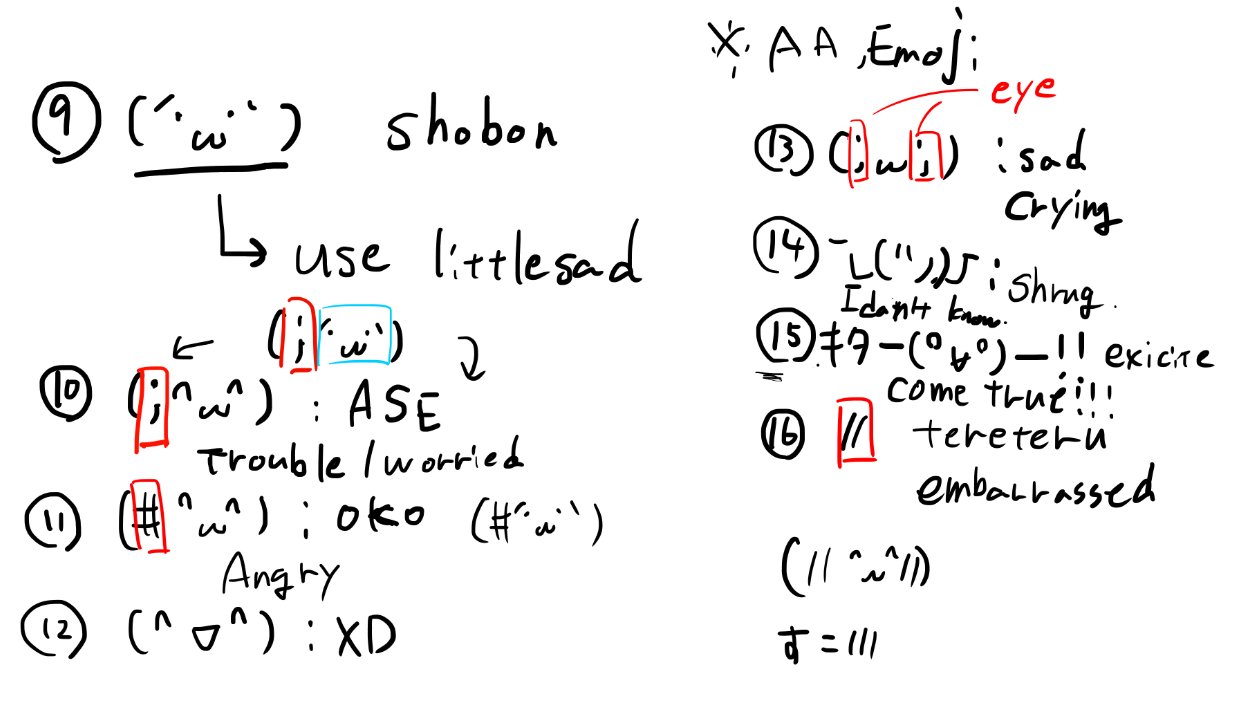 ⑨ (´・ω・`) shobon
use littlesad
(;´・ω・`)
⑩ (;^ω^) : ASE
Trouble / worried
⑪ (#^ω^) : oko (#´・ω・`)
Angry
⑫ (^▽^) : XD
※ AA, Emoji
eye
⑬ (;ω;) : sad
Crying
⑭ ¯\_(ツ)_/¯ : Shrug.
I don't know.
⑮ キタ―(゜∀゜)―!! exicite
come true!!!
⑯ // tereteru
embarrassed
(//^ω^//)
す=///